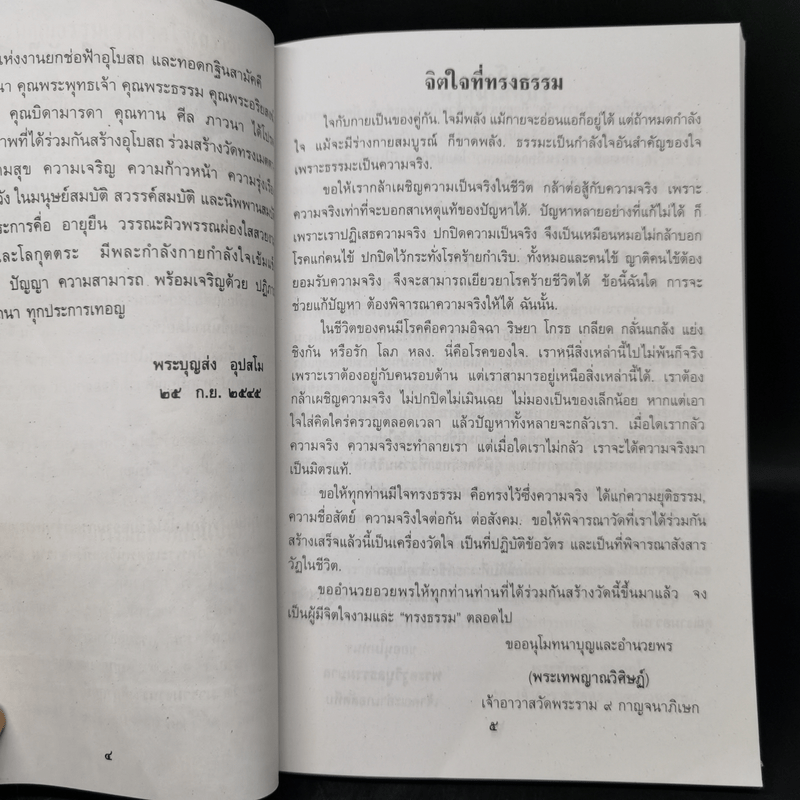 แห่งงานยกช่อฟ้าอุโบสถ และทอดกฐินสามัคคี
นา คุณพระพุทธเจ้า คุณพระธรรม คุณพระอริยสงฆ์
คุณบิดามารดา คุณทาน ศีล ภาวนา ได้โปรด
าพที่ได้ร่วมกันสร้างอุโบสถ ร่วมสร้างวัดทรงเมตตา
ามสุข ความเจริญ ความก้าวหน้า ความรุ่งเรือง
วัง ในมนุษย์สมบัติ สวรรค์สมบัติ และนิพพานสมบัติ
ะการคือ อายุยืน วรรณะผิวพรรณผ่องใสสวยงาม
และโลกุตตระ มีพละกำลังกายกำลังใจเข้มแข็ง
ปัญญา ความสามารถ พร้อมเจริญด้วย ปฏิภาณ
ถนา ทุกประการเทอญ
พระบุญส่ง อุปสโม
๒๕ ก.ย. ๒๕๔๕
๔
จิตใจที่ทรงธรรม
ใจกับกายเป็นของคู่กัน. ใจมีพลัง แม้กายจะอ่อนแอก็อยู่ได้ แต่ถ้าหมดกำลัง
ใจ แม้จะมีร่างกายสมบูรณ์ ก็ขาดพลัง. ธรรมะเป็นกำลังใจอันสำคัญของใจ
เพราะธรรมะเป็นความจริง.
ขอให้เรากล้าเผชิญความเป็นจริงในชีวิต กล้าต่อสู้กับความจริง เพราะ
ความจริงเท่าที่จะบอกสาเหตุแท้ของปัญหาได้. ปัญหาหลายอย่างที่แก้ไม่ได้ ก็
เพราะเราปฏิเสธความจริง ปกปิดความเป็นจริง จึงเป็นเหมือนหมอไม่กล้าบอก
โรคแก่คนไข้ ปกปิดไว้กระทั่งโรคร้ายกำเริบ. ทั้งหมอและคนไข้ ญาติคนไข้ต้อง
ยอมรับความจริง จึงจะสามารถเยียวยาโรคร้ายชีวิตได้ ข้อนี้ฉันใด การจะ
ช่วยแก้ปัญหา ต้องพิจารณาความจริงให้ได้ ฉันนั้น.
ในชีวิตของคนมีโรคคือความอิจฉา ริษยา โกรธ เกลียด กลั่นแกล้ง แย่ง
ชิงกัน หรือรัก โลภ หลง. นี่คือโรคของใจ. เราหนีสิ่งเหล่านี้ไปไม่พ้นก็จริง
เพราะเราต้องอยู่กับคนรอบด้าน แต่เราสามารอยู่เหนือสิ่งเหล่านี้ได้. เราต้อง
กล้าเผชิญความจริง ไม่ปกปิดไม่เมินเฉย ไม่มองเป็นของเล็กน้อย หากแต่เอา
ใจใส่คิดใคร่ครวญตลอดเวลา แล้วปัญหาทั้งหลายจะกลัวเรา. เมื่อใดเรากลัว
ความจริง ความจริงจะทำลายเรา แต่เมื่อใดเราไม่กลัว เราจะได้ความจริงมา
เป็นมิตรแท้.
ขอให้ทุกท่านมีใจทรงธรรม คือทรงไว้ซึ่งความจริง ได้แก่ความยุติธรรม,
ความซื่อสัตย์ ความจริงใจต่อกัน ต่อสังคม. ขอให้พิจารณาวัดที่เราได้ร่วมกัน
สร้างเสร็จแล้วนี้เป็นเครื่องวัดใจ เป็นที่ปฏิบัติข้อวัตร และเป็นที่พิจารณาสังสาร
วัฏในชีวิต.
ขออำนวยอวยพรให้ทุกท่านท่านที่ได้ร่วมกันสร้างวัดนี้ขึ้นมาแล้ว จง
เป็นผู้มีจิตใจงามและ “ทรงธรรม” ตลอดไป
ขออนุโมทนาบุญและอำนวยพร
(พระเทพญาณวิศิษฏ์)
เจ้าอาวาสวัดพระราม ๙ กาญจนาภิเษก
๕